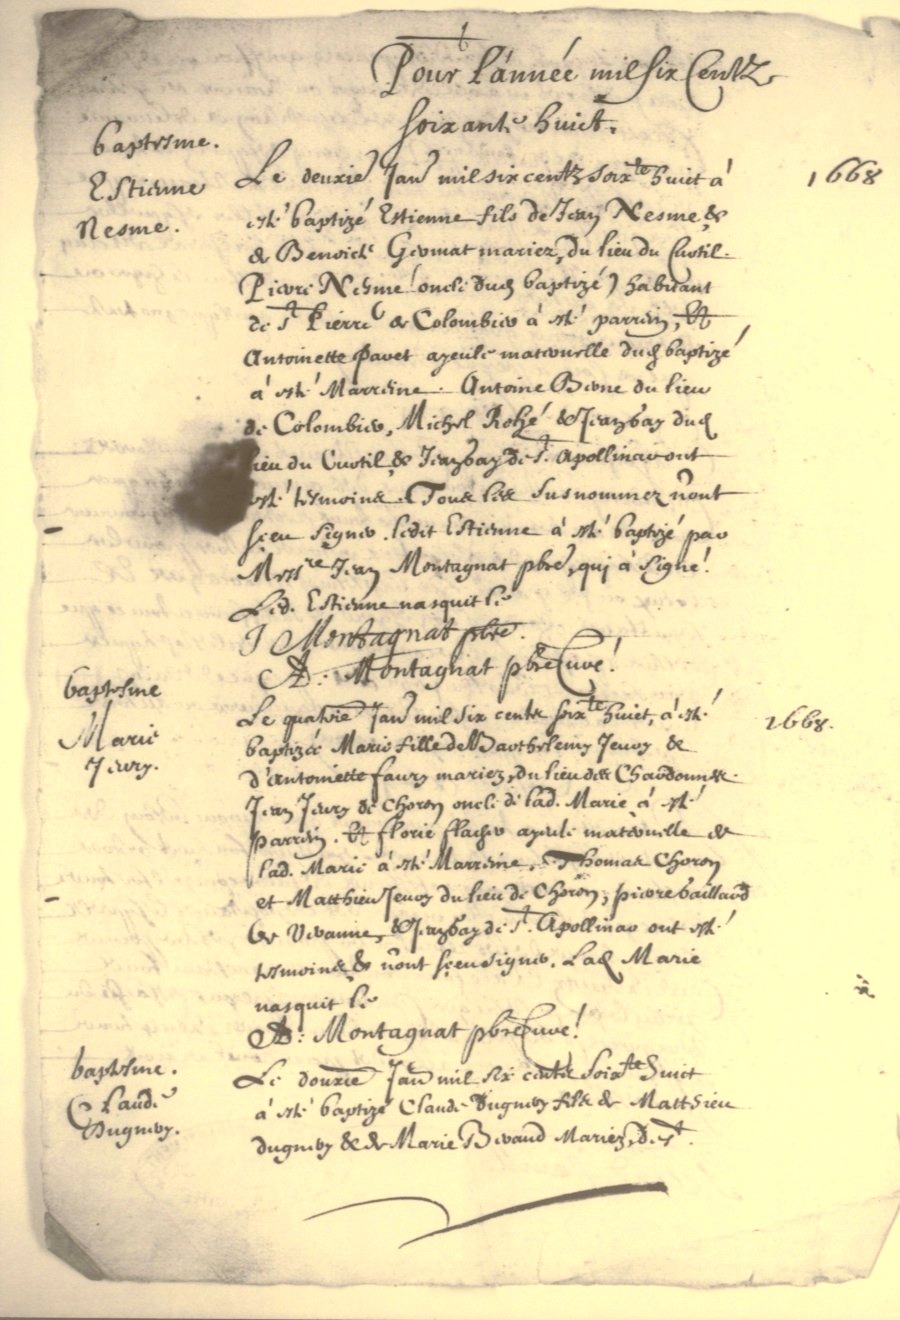 Pour l'année mil six Centz
soixante huict.
baptesme.
Estienne
Nesme.
Le deuxie Janr mil six centz soixte huict à
1668
esté baptizé Estienne fils de Jean Nesme &
de Benoicte mariez, du lieu du Crotil.
Pierre Nesme (oncle dud baptizé) habitant
de St Pierre de Colombier à esté parrein, Et
Antoinette Pavet ayeule maternelle dud baptizé
à esté Marreine. Antoine du lieu
de Colombier, Michel & Jean bay dud
lieu du Crotil & Jean bay de St. Apollinar ont
esté tesmoins. Tous les susnommez n'ont
sceu signer. ledit Estienne à esté baptizé par
Messre Jean Montagnat pbre, qui à signé.
Led. Estienne nasquit le
J Montagnat pbre.
A: Montagnat pbre Curé!
baptesme
Marie
Jeury.
Le quatrie Janr mil six cents soixte huict, à esté
1668.
baptizée Marie fille de Barthelemy Jeury &
d'Antoinette faury mariez, du lieu des Chardonnes.
Jean Jeury de Choron oncle de lad. Marie à esté
parrein. Et florie flacher ayeule maternelle de
lad. Marie à esté Marreine, Thomas Choron
et Matthieu Jeury du lieu de Choron, pierre baillard
de & Jean bay de St. Apollinar ont esté
tesmoins & n'ont sceu signer. Lad Marie
nasquit le
A: Montagnat pbre Curé!
baptesme.
Claude
Dugnery.
Le douxie Janr mil six cents soixte huict
à esté baptizé Claude Dugnery fils de Matthieu
dugnery & de Marie Mariez, de St.